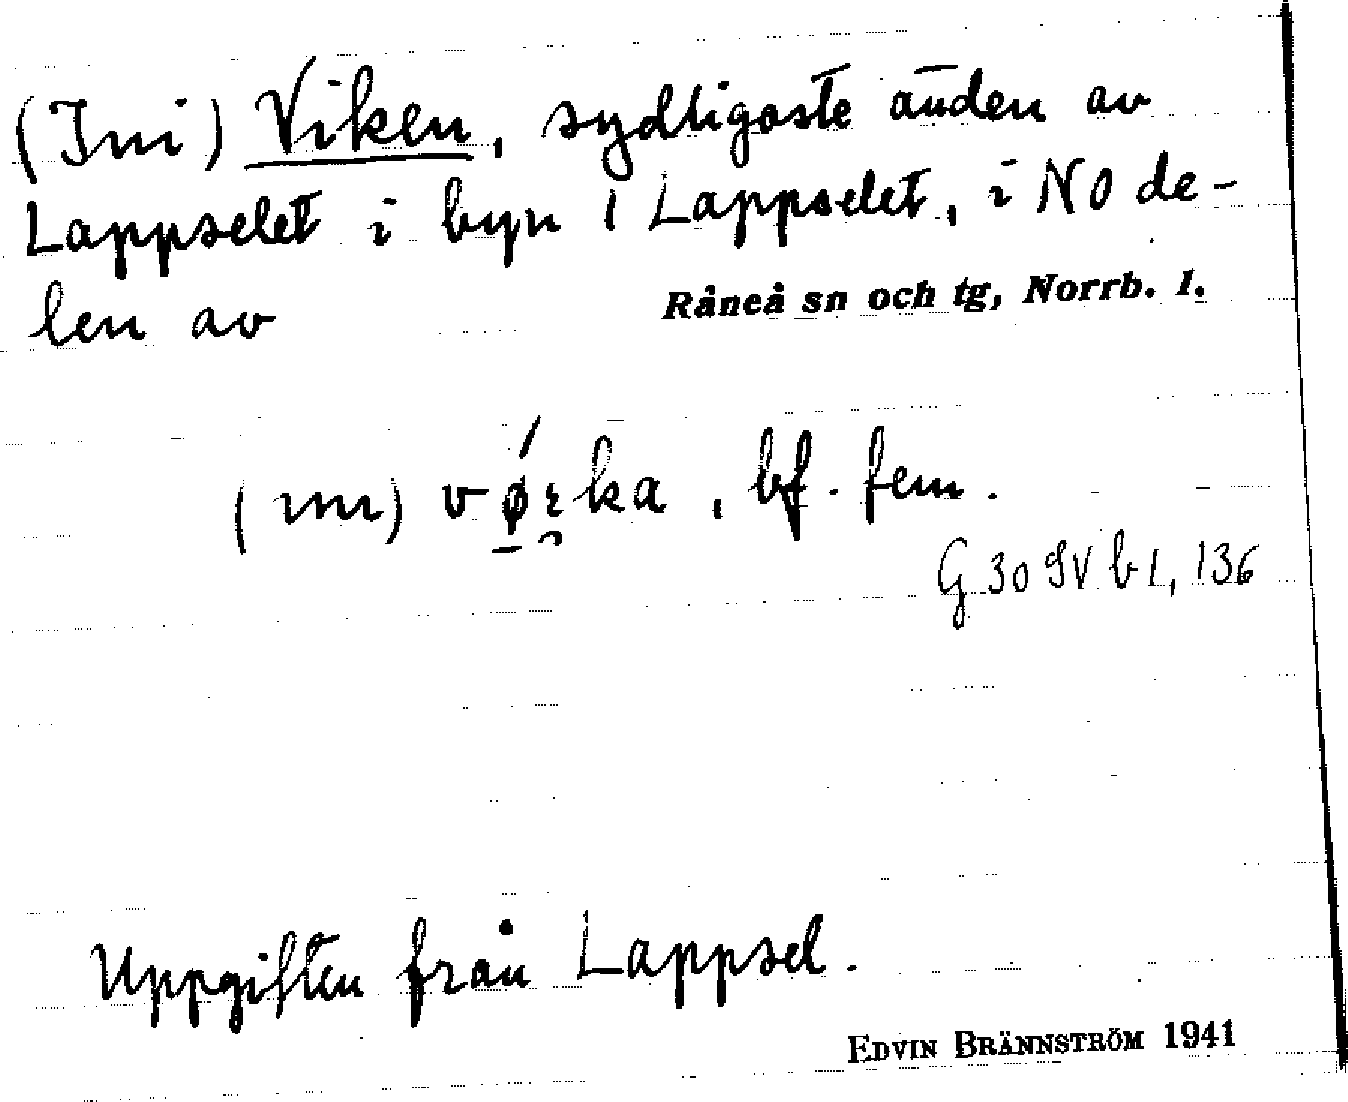 (Ini) Viken, sydligaste änden av
Lappselet i byn 1 Lappselet, i NO de-
len av Råneå sn och tg, Norrb. l.
(ini) bf. fem.
G 30 IV b 1, 136
Uppgiften från Lappsel.
EDVIN BRÄNNSTRÖM 1941